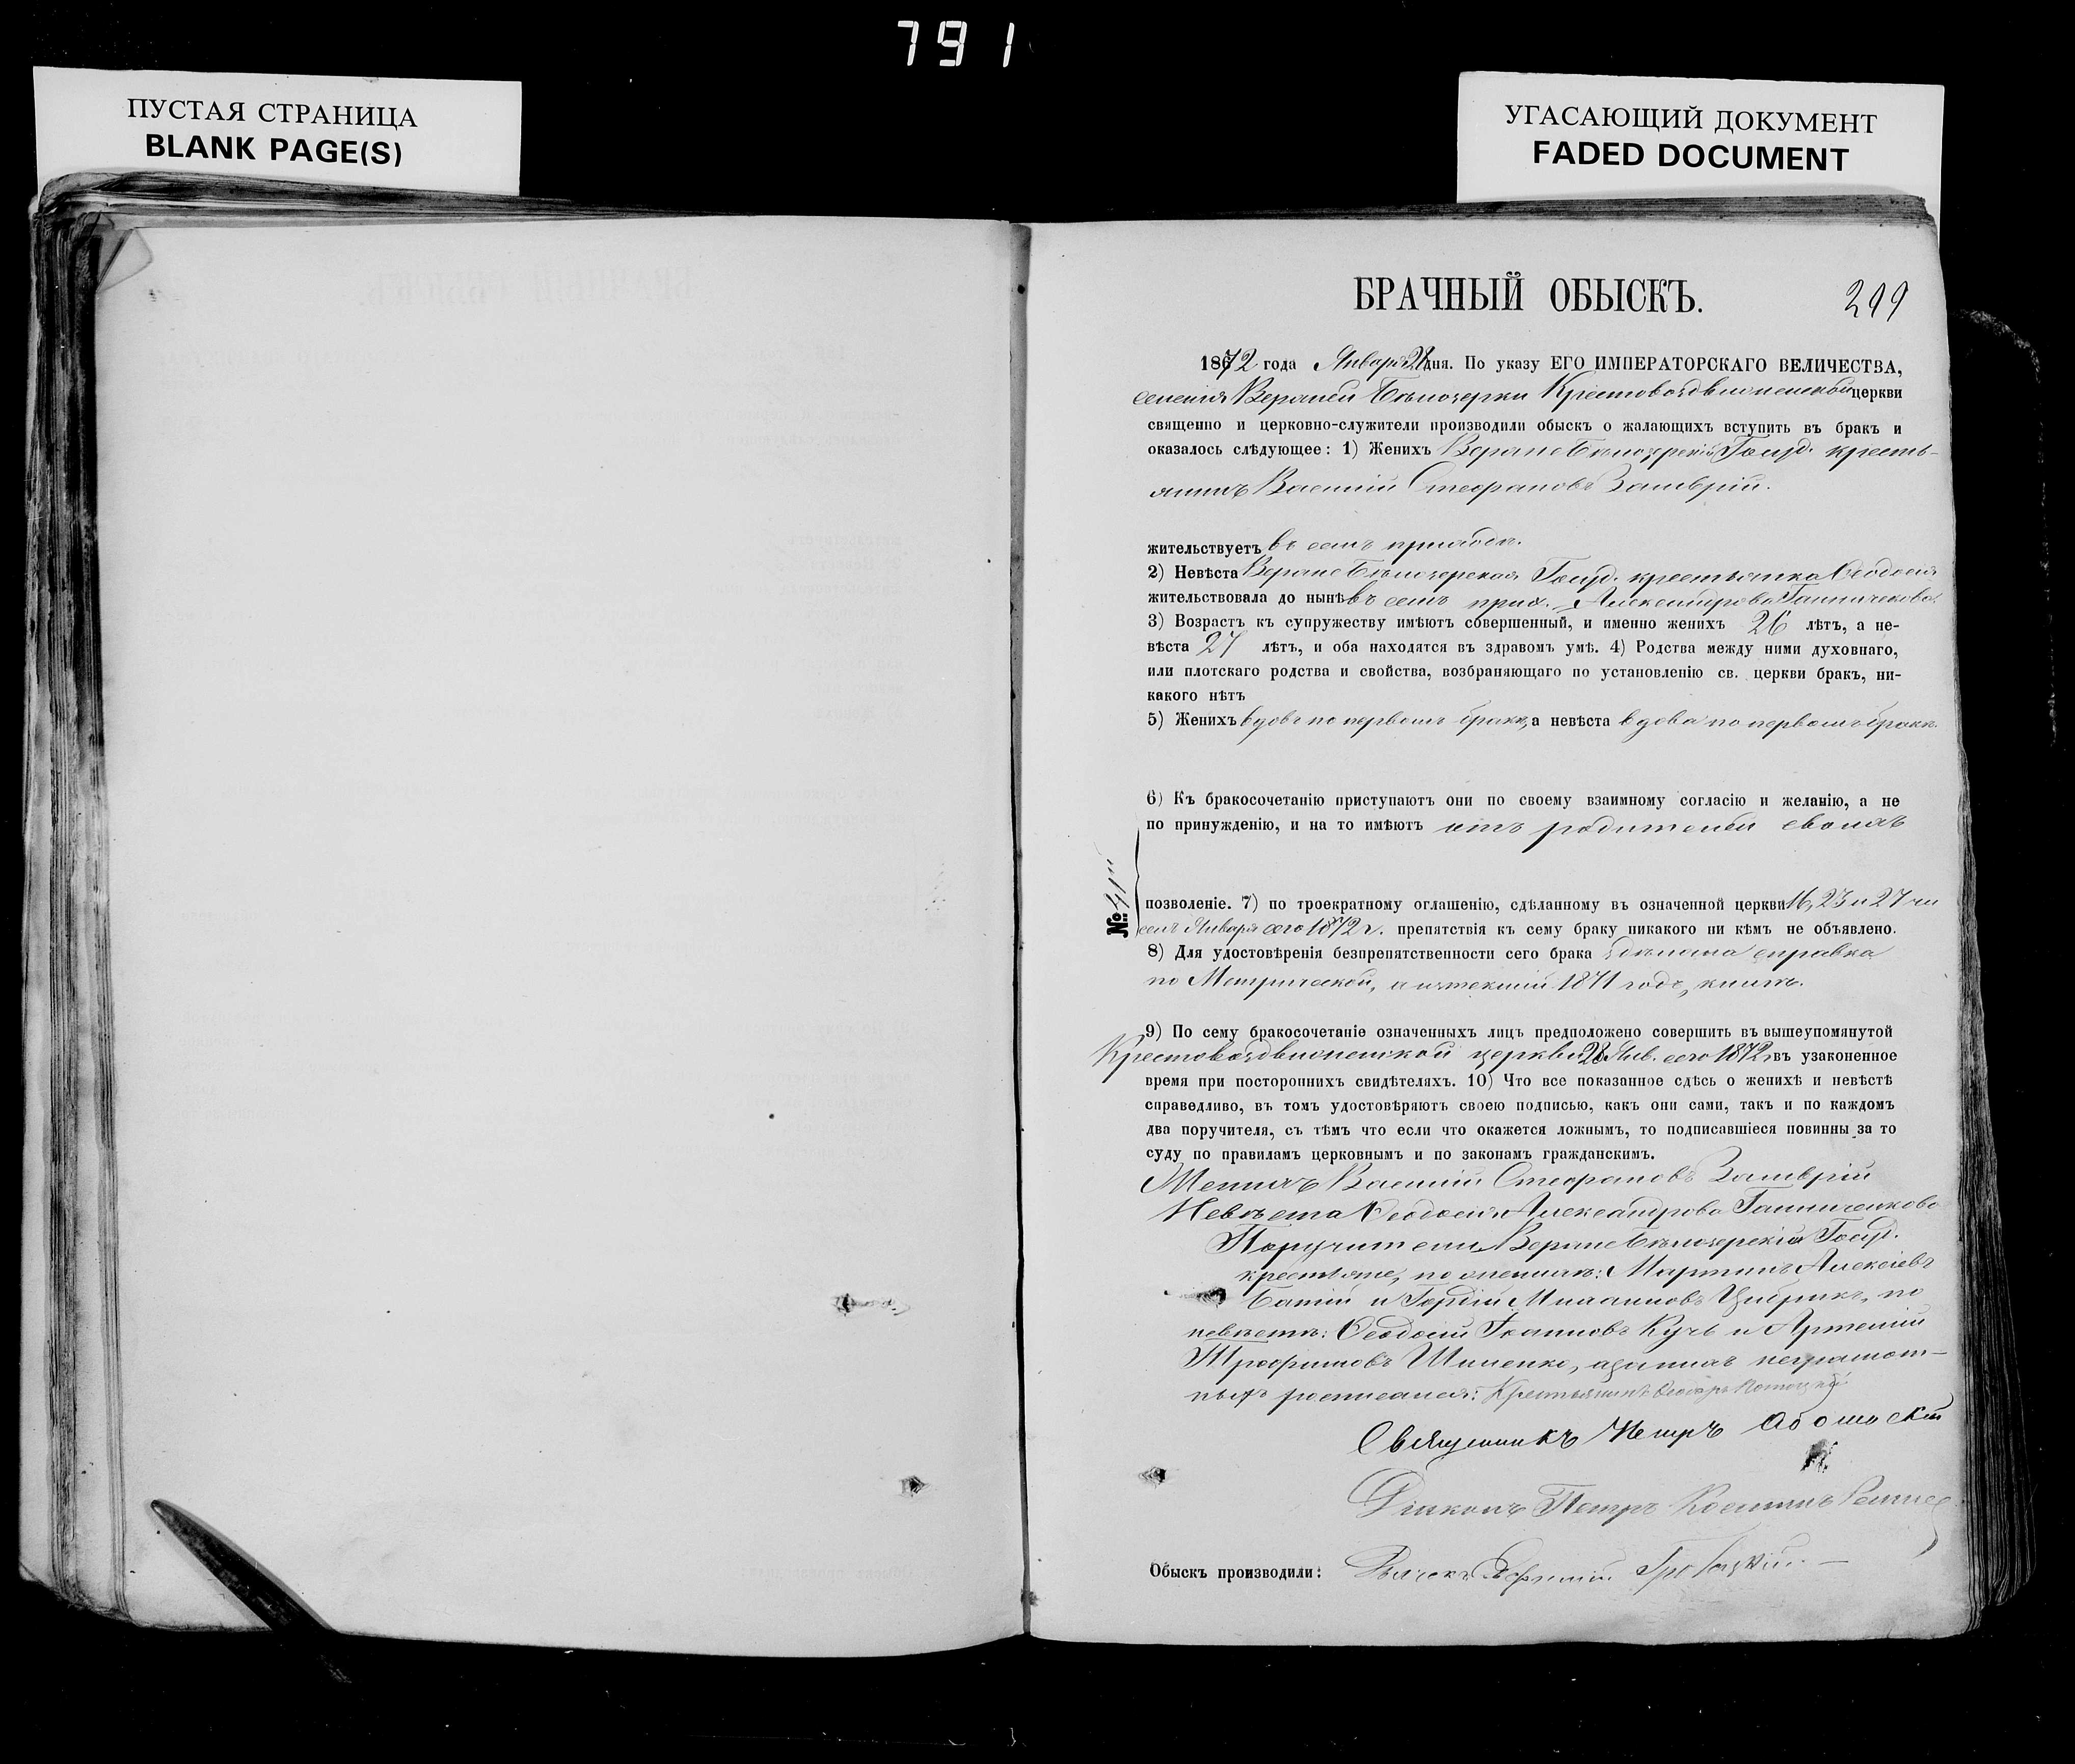 791
ПУСТАЯ СТРАНИЦА
BLANK PAGE(S)
УГАСАЮЩИЙ ДОКУМЕНТ
FADED DOCUMENT
БРАЧНЫЙ ОБЫСКЪ.
299
1872 года Января дня. По указу ЕГО ИМПЕРАТОРСКАГО ВЕЛИЧЕСТВА,
селенія Верхней Бѣлозерки Крестовоздвиженской церкви
священно и церковно-служители производили обыскъ о жалающихъ вступить въ бракъ и
оказалось слѣдующее: 1) Женихъ Верхне Бѣлозерскій Госуд. кресть-
янинъ Василій Стефановъ
жительствуетъ въ семъ приходѣ.
2) Невѣста Верхне Бѣлозерская Госуд. крестьянка Ѳеодосія
жительствовала до нынѣ въ семъ прих. Александрова
3) Возрастъ къ супружеству имѣютъ совершенный, и именно женихъ 26 лѣтъ, а не-
вѣста 27 лѣтъ, и оба находятся въ здравомъ умѣ. 4) Родства между ними духовнаго,
или плотскаго родства и свойства, возбраняющаго по установленію св. церкви бракъ, ни-
какого нѣтъ
5) Женихъ вдовъ по первомъ бракѣ, а невѣста вдова по первомъ бракѣ.
6) Къ бракосочетанію приступаютъ они по своему взаимному согласію и желанію, а не
по принужденію, и на то имѣютъ отъ родителей своихъ
№
позволеніе. 7) по троекратному оглашенію, сдѣланному въ означенной церкви 16, 23 и 27 чи
селъ Января сего 1872 г. препятствія къ сему браку никакого ни кѣмъ не объявлено.
8) Для удостовѣренія безпрепятственности сего брака сдѣлана справка
по Метрической, за истекшій 1871 годъ, книгѣ.
9) По сему бракосочетаніе означенныхъ лицъ предположено совершить въ вышеупомянутой
Крестовоздвиженской церкви 28 Янв. сего 1872 въ узаконенное
время при постороннихъ свидѣтеляхъ. 10) Что все показанное сдѣсь о женихѣ и невѣстѣ
справедливо, въ томъ удостовѣряютъ своею подписью, какъ они сами, такъ и по каждомъ
два поручителя, съ тѣмъ что если что окажется ложнымъ, то подписавшіеся повинны за то
суду по правиламъ церковнымъ и по законамъ гражданскимъ.
Женихъ Василій Стефановъ
Невѣста Ѳеодосія Александрова
Поручители Верхне Бѣлозерскіе Госуд.
крестьяне, по женихѣ: Мартинъ Алексіевъ
и Гордій Цибрикъ, по
невѣстѣ: Ѳеодосій Іоанновъ Кучъ и Артемій
Трофимовъ Шиленко, а за нихъ неграмот-
ныхъ росписался: Крестьянинъ Ѳеодоръ
Священникъ Петръ
Діаконъ Петръ
Обыскъ производили: Дьячекъ